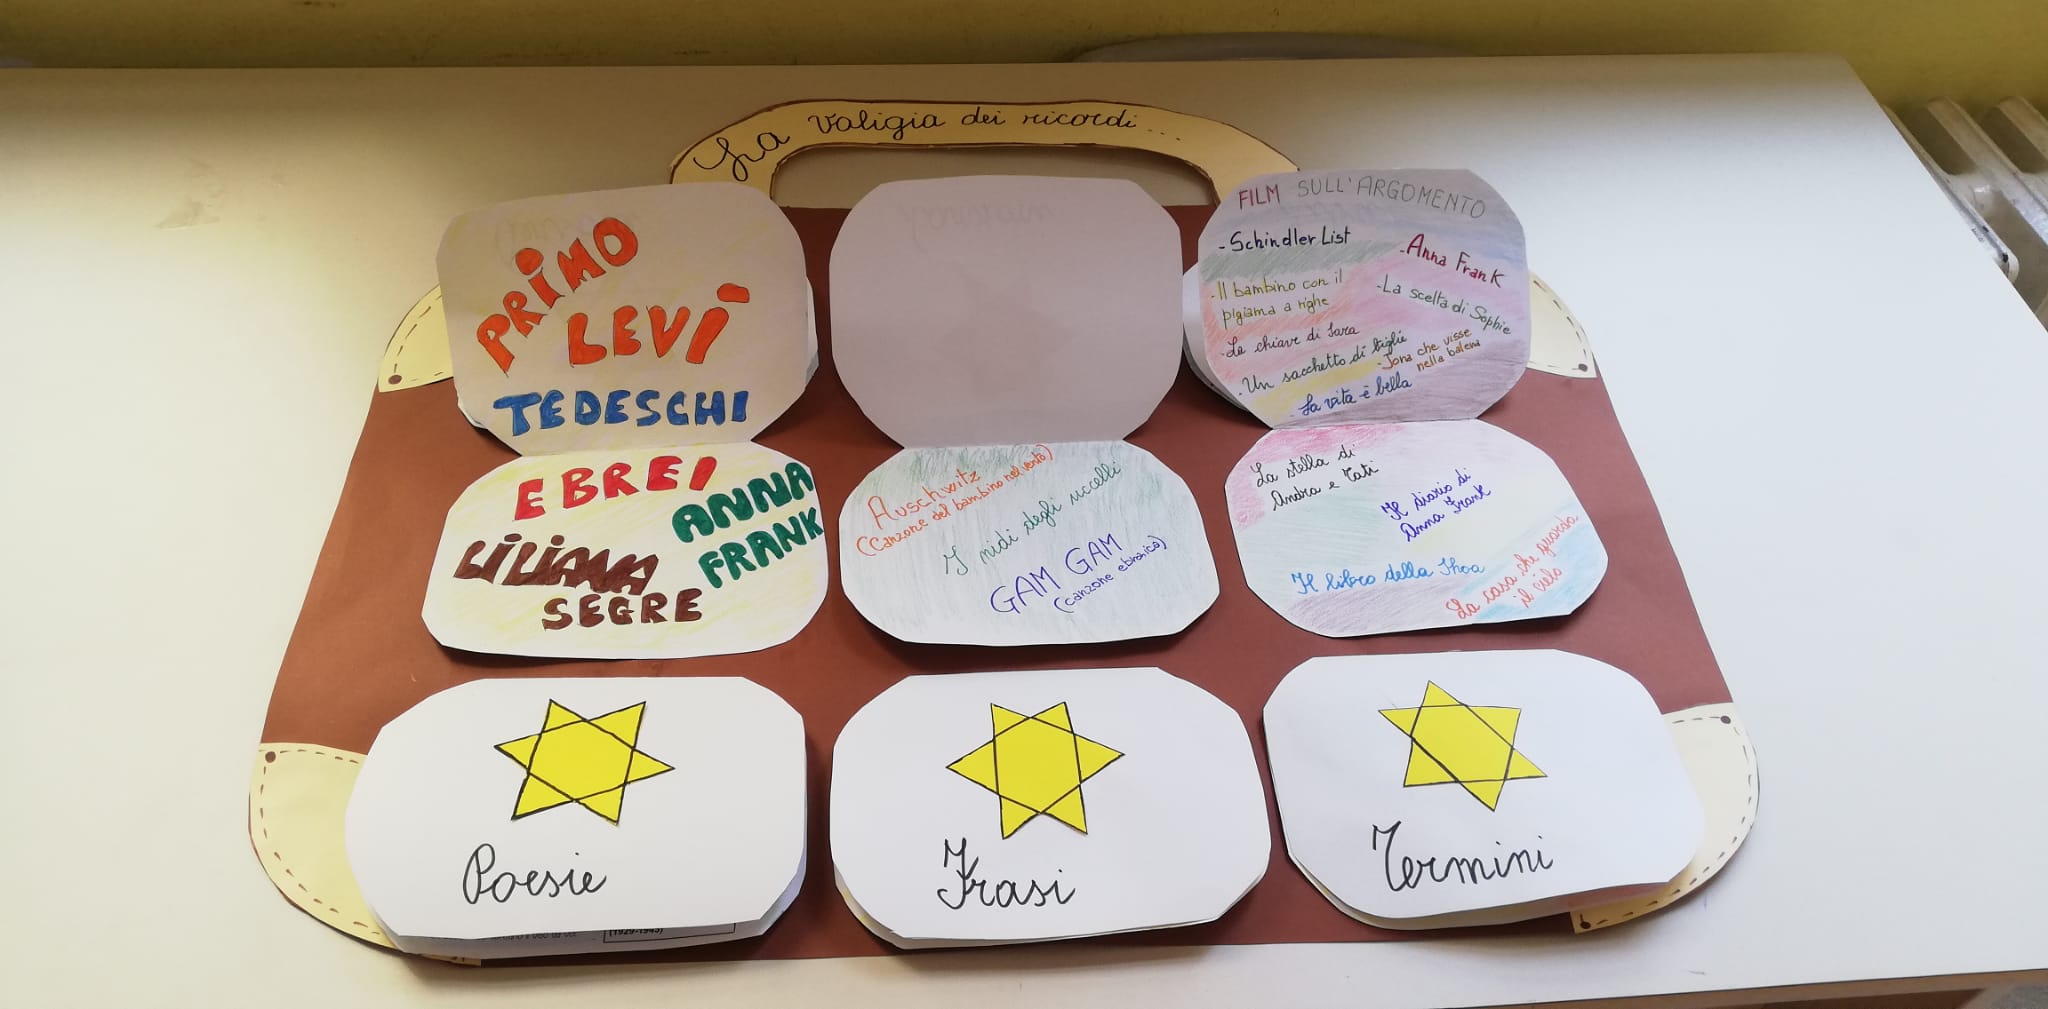 La valigia dei ricordi...
PRIMO
LEVI
TEDESCHI
EBREI
ANNA
FRANK
LILIANA
SEGRE
Auschwitz
(Canzone del bambino nel vento)
I nidi degli uccelli
GAM GAM
(canzone ebraica)
FILM SULL'ARGOMENTO
- Schindler List
- Anna Frank
- Il bambino con il
pigiama a righe
- La scelta di Sophie
- La chiave di Sara
- Un sacchetto di biglie
- Jona che visse
nella balena
- La vita è bella
La stella di
Andra e Tati
Il diario di
Anna Frank
Il libro della Shoa
La casa che guarda
il cielo
Poesie
(1929-1945)
Frasi
Termini